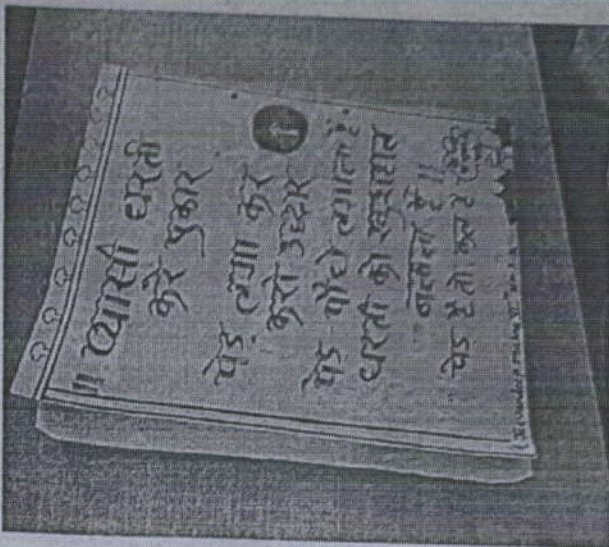 || प्यासी धरती
करे पुकार
पेड़ लगा कर
करो उद्धार
पेड़ पौधे लगाना है
धरती को खुशहाल
बनाना है ||
पेड़ है तो कल है